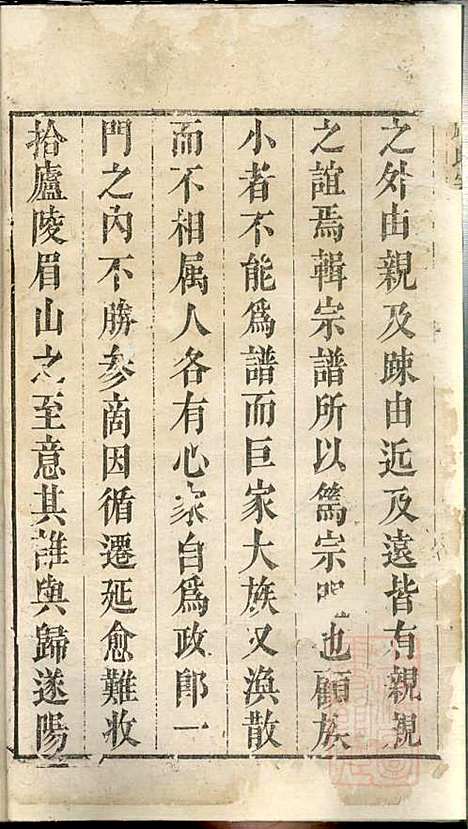 之外由親及踈由近及遠皆有親親
之誼焉輯宗譜所以篤宗也顧族
小者不能爲譜而巨家大族又渙散
而不相属人各有心家自爲政郎一
門之內不勝参啇因循遷延愈難收
拾廬陵眉山之至意其誰與歸遂陽